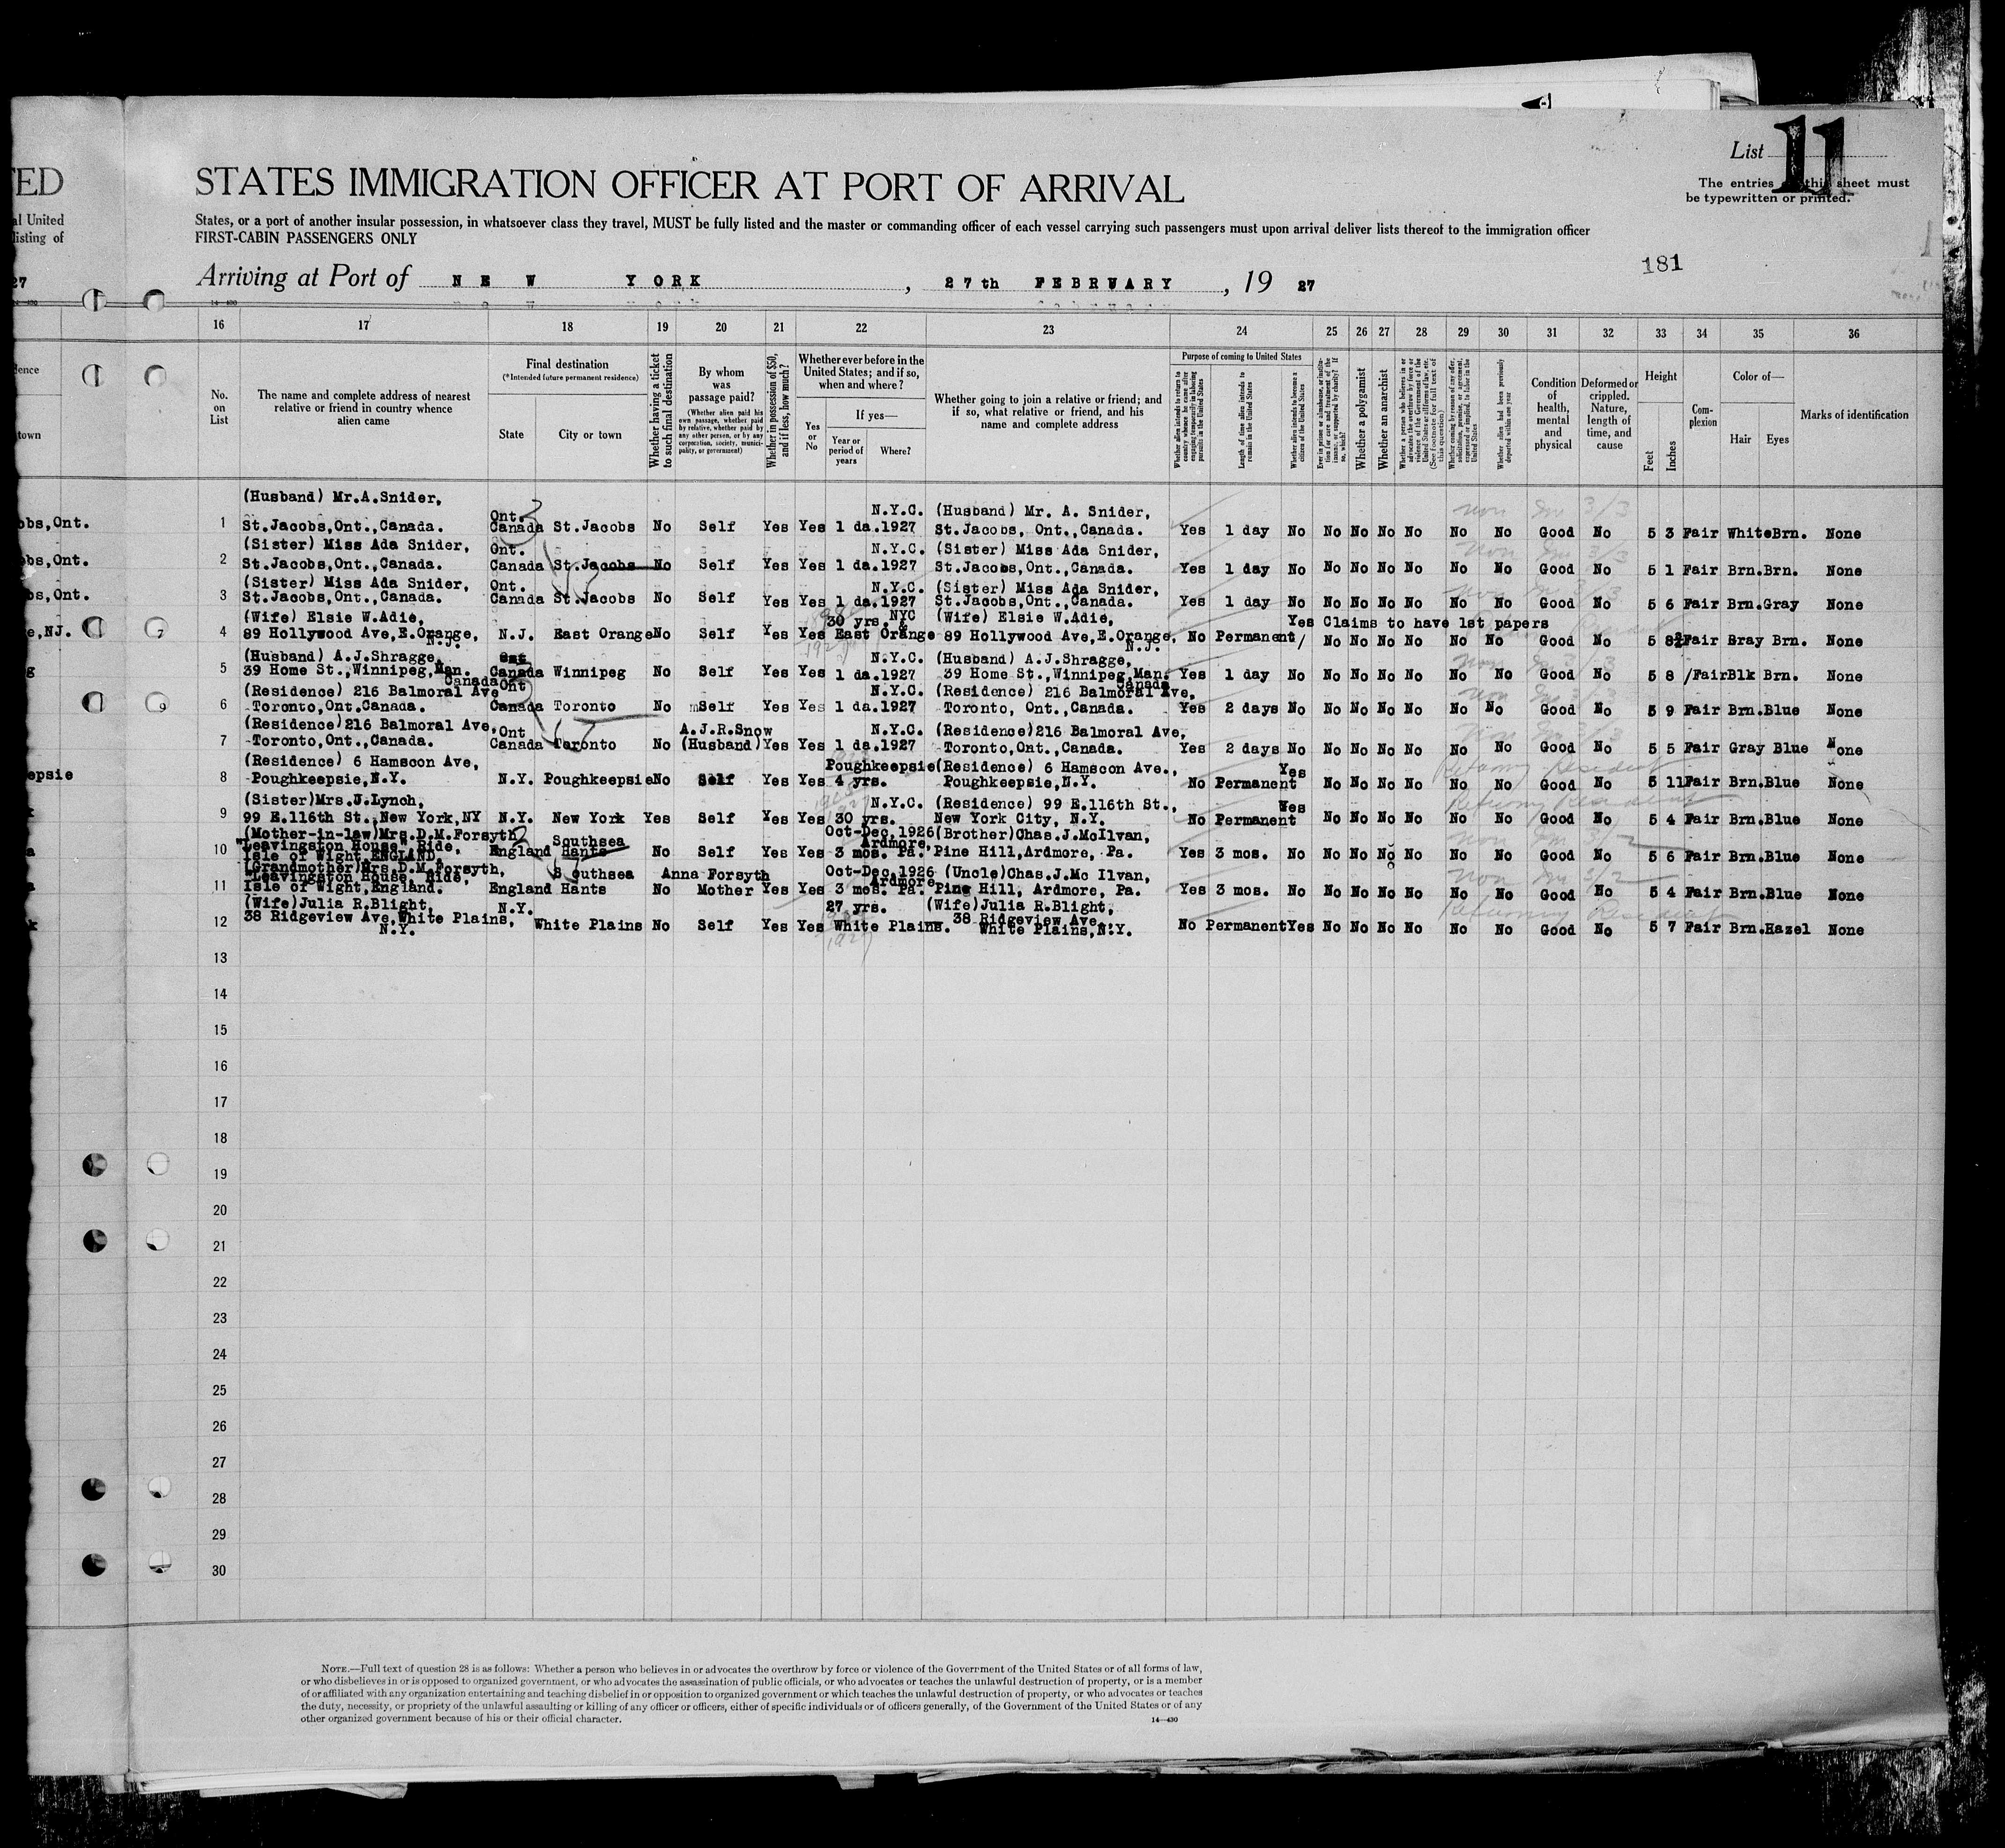 List 11
The entries this sheet must
be typewritten or printed.
TED
STATES IMMIGRATION OFFICER AT PORT OF ARRIVAL
al United
listing of
States, or a port of another insular possession, in whatsoever class they travel, MUST be fully listed and the master or commanding officer of each vessel carrying such passengers must upon arrival deliver lists thereof to the immigration officer
FIRST-CABIN PASSENGERS ONLY
181
27
Arriving at Port of NEW YORK, 27th FEBRUARY, 19 27
14—430
16 17 18 19 20 21 22 23 24 25 26 27 28 29 30 31 32 33 34 35 36
No. on List
The name and complete address of nearest relative or friend in country whence alien came
Final destination
(*Intended future permanent residence)
State
City or town
Whether having a ticket to such final destination
By whom was passage paid?
(Whether alien paid his own passage, whether paid by relative, whether paid by any other person, or by any corporation, society, municipality, or government)
Whether in possession of $50, and if less, how much?
Whether ever before in the United States; and if so, when and where?
Yes or No
If yes—
Year or period of years
Where?
Whether going to join a relative or friend; and if so, what relative or friend, and his name and complete address
Purpose of coming to United States
Whether alien intends to return to country whence he came after engaging temporarily in laboring pursuits in the United States
Length of time alien intends to remain in the United States
Whether alien intends to become a citizen of the United States
Ever in prison or almshouse, or institution for care and treatment of the insane, or supported by charity? If so, which?
Whether a polygamist
Whether an anarchist
Whether a person who believes in or advocates the overthrow by force or violence of the Government of the United States or all forms of law, etc. (See footnote for full text of this question)
Whether coming by reason of any offer, solicitation, promise, or agreement, expressed or implied, to labor in the United States
Whether alien had been previously deported within one year
Condition of health, mental and physical
Deformed or crippled. Nature, length of time, and cause
Height
Feet
Inches
Complexion
Color of—
Hair
Eyes
Marks of identification
(Husband) Mr.A.Snider, Ont. N.Y.C. (Husband) Mr. A. Snider,
1 St.Jacobs,Ont.,Canada. Canada St.Jacobs No Self Yes Yes 1 da.1927 St.Jacobs, Ont.,Canada. Yes 1 day No No No No No No No Good No 5 3 Fair White Brn. None
(Sister) Miss Ada Snider, Ont. N.Y.C. (Sister) Miss Ada Snider,
2 St.Jacobs,Ont.,Canada. Canada St.Jacobs No Self Yes Yes 1 da.1927 St.Jacobs,Ont.,Canada. Yes 1 day No No No No No No No Good No 5 1 Fair Brn.Brn. None
(Sister) Miss Ada Snider, Ont. N.Y.C (Sister) Miss Ada Snider,
3 St.Jacobs,Ont.,Canada. Canada St.Jacobs No Self Yes Yes 1 da.1927 St.Jacobs,Ont.,Canada. Yes 1 day No No No No No No No Good No 5 6 Fair Brn.Gray None
(Wife) Elsie W.Adie, 30 yrs. NYC & (Wife) Elsie W.Adie, Yes Claims to have 1st papers
4 89 Hollywood Ave,E.Orange, N.J. N.J. East Orange No Self Yes Yes East Orange 89 Hollywood Ave,E.Orange, N.J. No Permanent No No No No No No Good No 5 8½ Fair Bray Brn. None
(Husband) A.J.Shragge, N.Y.C. (Husband) A.J.Shragge,
5 39 Home St.,Winnipeg,Man. Canada Canada Winnipeg No Self Yes Yes 1 da.1927 39 Home St.,Winnipeg,Man. Canada Yes 1 day No No No No No No No Good No 5 8 /Fair Blk Brn. None
(Residence) 216 Balmoral Ave Ont N.Y.C. (Residence) 216 Balmoral Ave,
6 Toronto,Ont.Canada. Canada Toronto No mSelf Yes Yes 1 da.1927 Toronto, Ont.,Canada. Yes 2 days No No No No No No No Good No 5 9 Fair Brn.Blue None
(Residence)216 Balmoral Ave, Ont A.J.R.Snow N.Y.C. (Residence)216 Balmoral Ave,
7 -Toronto,Ont.,Canada. Canada Toronto No (Husband) Yes Yes 1 da.1927 -Toronto,Ont.,Canada. Yes 2 days No No No No No No No Good No 5 5 Fair Gray Blue None
(Residence) 6 Hamscon Ave, Poughkeepsie (Residence) 6 Hamscon Ave., Yes
8 -Poughkeepsie,N.Y. N.Y. Poughkeepsie No Self Yes Yes 4 yrs. Poughkeepsie,N.Y. No Permanent No No No No No No Good No 5 11 Fair Brn.Blue None
Returning Resident
(Sister)Mrs.J.Lynch, N.Y.C. (Residence) 99 E.116th St., Yes
9 99 E.116th St.,New York,NY N.Y. New York Yes Self Yes Yes 30 yrs. New York City, N.Y. No Permanent No No No No No No Good No 5 4 Fair Brn.Blue None
Returning Resident
(Mother-in-law)Mrs.D.M.Forsyth Southsea Oct-Dec,1926 Ardmore, (Brother)Chas.J.McIlvan,
10 "Leavingston House" Ride, Isle of Wight ENGLAND. England Hants No Self Yes Yes 3 mos. Pa. Pine Hill,Ardmore, Pa. Yes 3 mos. No No No No No No No Good No 5 6 Fair Brn.Blue None
(Grandmother)Mrs.D.M.Forsyth, Southsea Anna Forsyth Oct-Dec,1926 Ardmore (Uncle)Chas.J.Mc Ilvan,
11 "Leavingston House, Ride, Isle of Wight,England. England Hants No Mother Yes Yes 3 mos. Pa. Pine Hill, Ardmore, Pa. Yes 3 mos. No No No No No No No Good No 5 4 Fair Brn.Blue None
(Wife)Julia R.Blight, N.Y. 27 yrs. (Wife)Julia R.Blight,
Returning Resident
12 38 Ridgeview Ave,White Plains, N.Y. White Plains No Self Yes Yes White Plains. 38 Ridgeview Ave., White Plains,N.Y. No Permanent Yes No No No No No No Good No 5 7 Fair Brn.Hazel None
13
14
15
16
17
18
19
20
21
22
23
24
25
26
27
28
29
30
NOTE.—Full text of question 28 is as follows: Whether a person who believes in or advocates the overthrow by force or violence of the Government of the United States or of all forms of law,
or who disbelieves in or is opposed to organized government, or who advocates the assassination of public officials, or who advocates or teaches the unlawful destruction of property, or is a member
of or affiliated with any organization entertaining and teaching disbelief in or opposition to organized government or which teaches the unlawful destruction of property, or who advocates or teaches
the duty, necessity, or propriety of the unlawful assaulting or killing of any officer or officers, either of specific individuals or of officers generally, of the Government of the United States or of any
other organized government because of his or their official character.
14—430